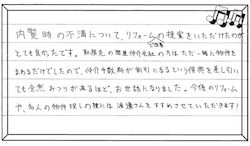 内覧時の不満について、リフォームの提案をいただけたのが
とても良かったです。勤務先の関連仲介会社の方はただ一緒に物件を
まわるだけでしたので、仲介手数料が割引になるという優典を差し引い
ても全然おつりが来るほど、お世話になりました。今後のリフォーム
や、知人の物件探しの際には渡邉さんをすすめさせていただきます!